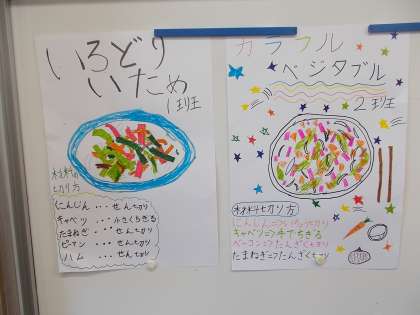 いろどり
いため
1班
材料の
切り方
にんじん・・・せん切り
キャベツ・・・小さくちぎる
たまねぎ・・・せん切り
ピーマン・・・せん切り
ハム・・・せん切り
カラフル
ベジタブル
2班
材料と切り方
キャベツ⇒手でちぎる
ベーコン⇒たんざく切り
たまねぎ⇒たんざく切り